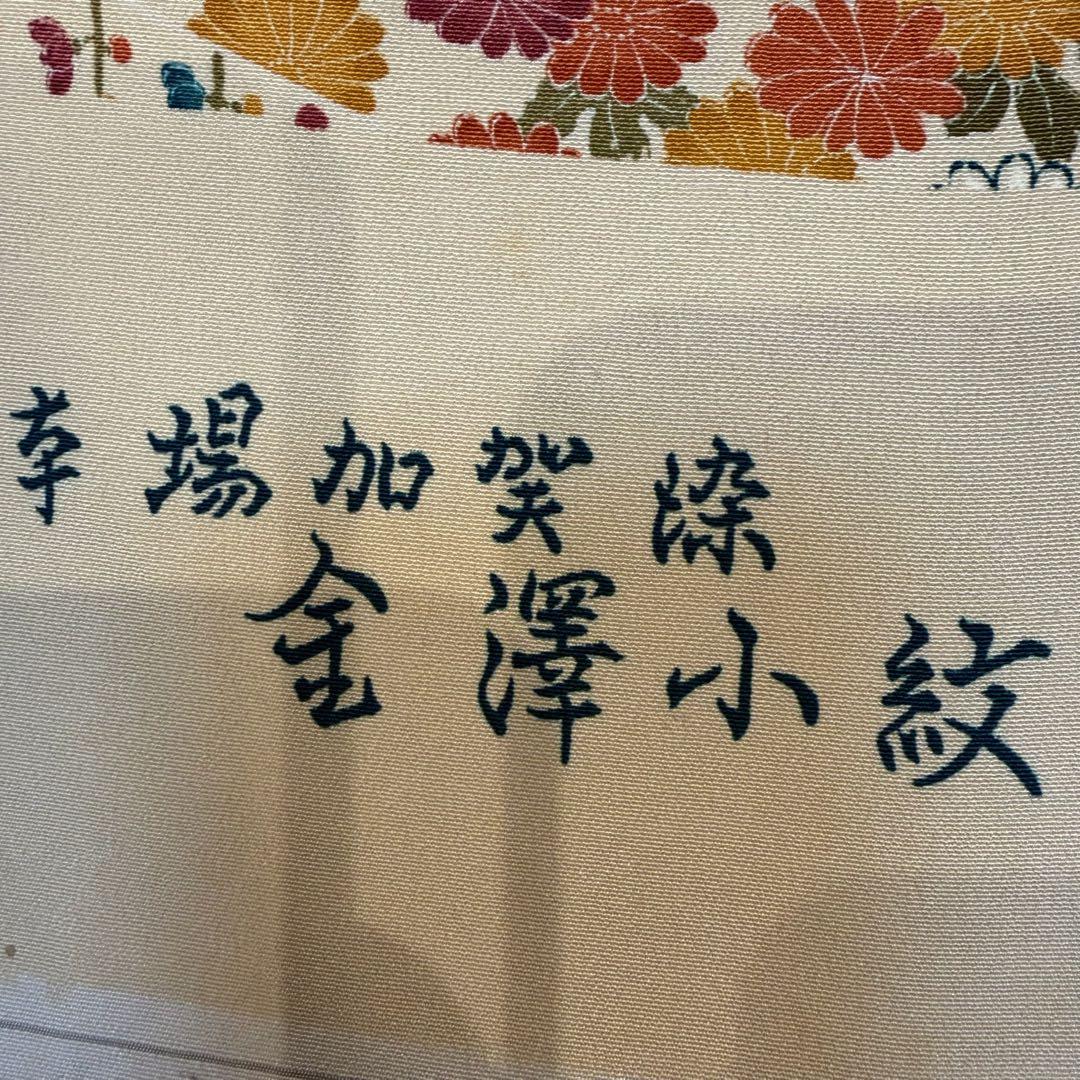 本場加賀染
金澤小紋